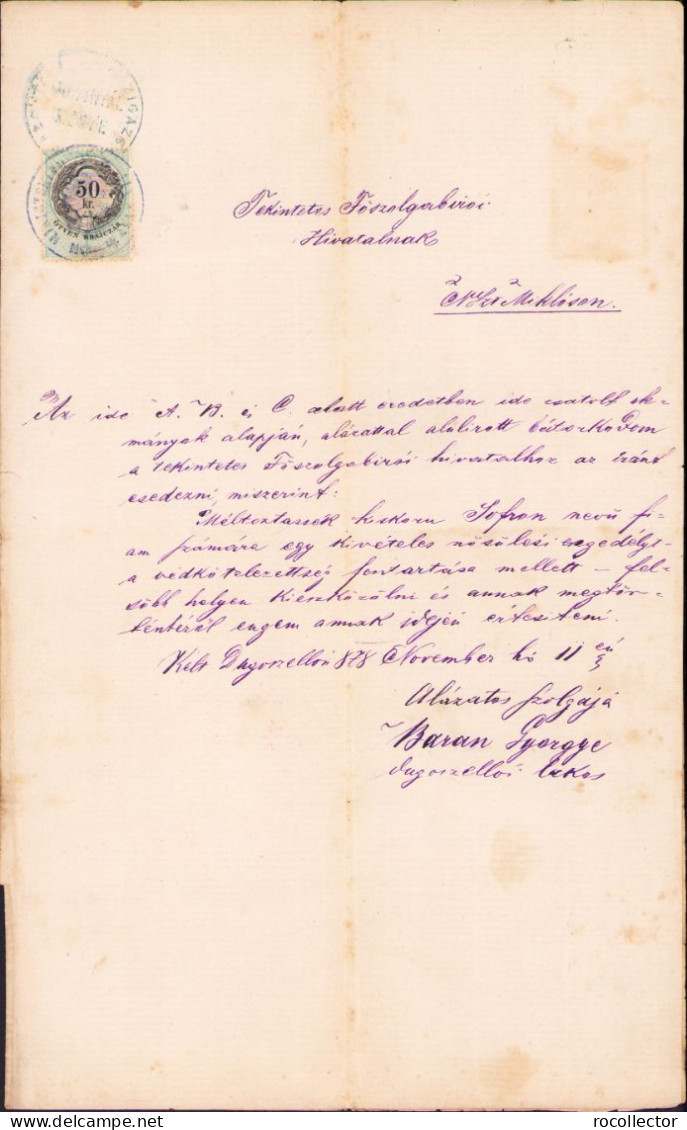 50
kr.
ÖTVEN KRAJCZÁR
Tekintetes Főszolgabirói
Hivatalnak
N. Szt Miklóson.
Az ide A. B. és C. alatt eredetben ide csatolt ok-
mányok alapján, alázattal alolirott bátorkodom
a tekintetes Főszolgabirói hivatalhoz az iránt
esedezni, miszerint:
Méltoztassék kiskoru Sofron nevű fi-
am számára egy kivételes nősülési engedélyt
a védkötelezettség fentartása mellett – fel-
sőbb helyen kieszközölni és annak megtör-
téntéről engem annak idején értesiteni.
Kelt Dugoszellón 878 November hó 11 én
Alázatos szolgája
Baran Györgye
dugoszellói lakos
delcampe.net
rocollector